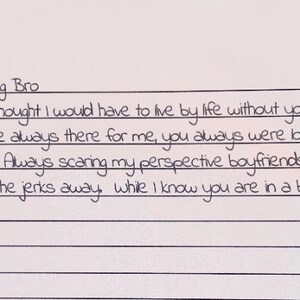 g Bro
hought I would have to live by life without yo
e always there for me, you always were lo
Always scaring my perspective boyfriends
he jerks away. While I know you are in a b